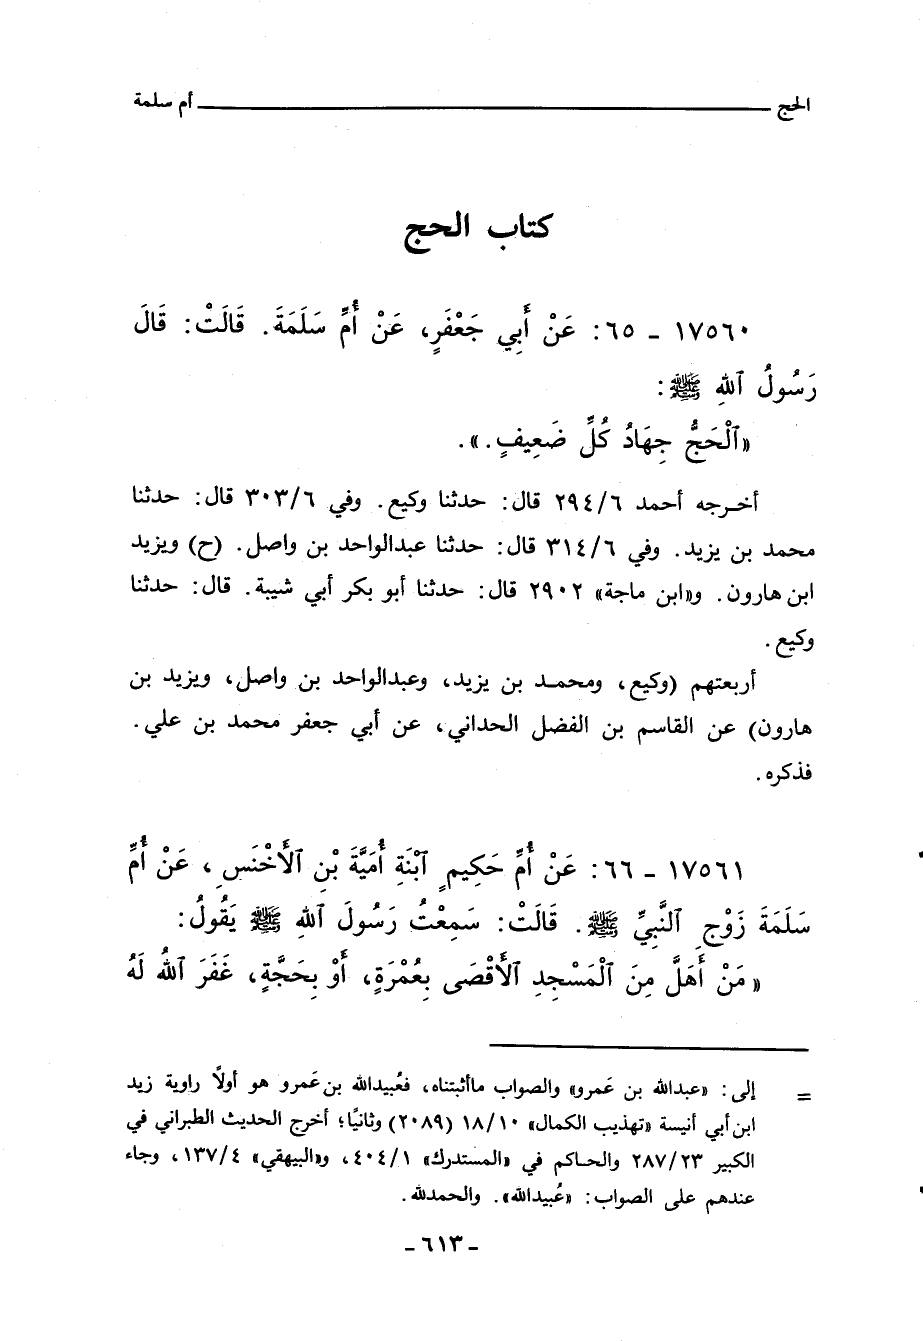 الحج ــــــ أم سلمة
كتاب الحج
١٧٥٦٠ - ٦٥: عَنْ أَبِي جَعْفَرٍ، عَنْ أُمِّ سَلَمَةَ. قَالَتْ: قَالَ
رَسُولُ ٱللهِ ﷺ:
«ٱلْحَجُّ جِهَادُ كُلِّ ضَعِيفٍ.».
أخرجه أحمد ٢٩٤/٦ قال: حدثنا وكيع. وفي ٣٠٣/٦ قال: حدثنا
محمد بن يزيد. وفي ٣١٤/٦ قال: حدثنا عبدالواحد بن واصل. (ح) ويزيد
ابن هارون. و«ابن ماجة» ٢٩٠٢ قال: حدثنا أبو بكر أبي شيبة. قال: حدثنا
وكيع.
أربعتهم (وكيع، ومحمد بن يزيد، وعبدالواحد بن واصل، ويزيد بن
هارون) عن القاسم بن الفضل الحداني، عن أبي جعفر محمد بن علي.
فذكره.
١٧٥٦١ - ٦٦: عَنْ أُمِّ حَكِيمٍ ٱبْنَةِ أُمَيَّةَ بْنِ ٱلأَخْنَسِ، عَنْ أُمِّ
سَلَمَةَ زَوْجِ ٱلنَّبِيِّ ﷺ. قَالَتْ: سَمِعْتُ رَسُولَ ٱللهِ ﷺ يَقُولُ:
«مَنْ أَهَلَّ مِنَ ٱلْمَسْجِدِ ٱلأَقْصَى بِعُمْرَةٍ، أَوْ بِحَجَّةٍ، غَفَرَ ٱللهُ لَهُ
= إلى: «عبدالله بن عَمرو» والصواب ماأثبتناه، فعُبيدالله بن عَمرو هو أولاً راوية زيد
ابن أبي أنيسة «تهذيب الكمال» ١٨/١٠ (٢٠٨٩) وثانيًا؛ أخرج الحديث الطبراني في
الكبير ٢٨٧/٢٣ والحاكم في «المستدرك» ٤٠٤/١، و«البيهقي» ١٣٧/٤، وجاء
عندهم على الصواب: «عُبيدالله». والحمدلله.
- ٦١٣ -